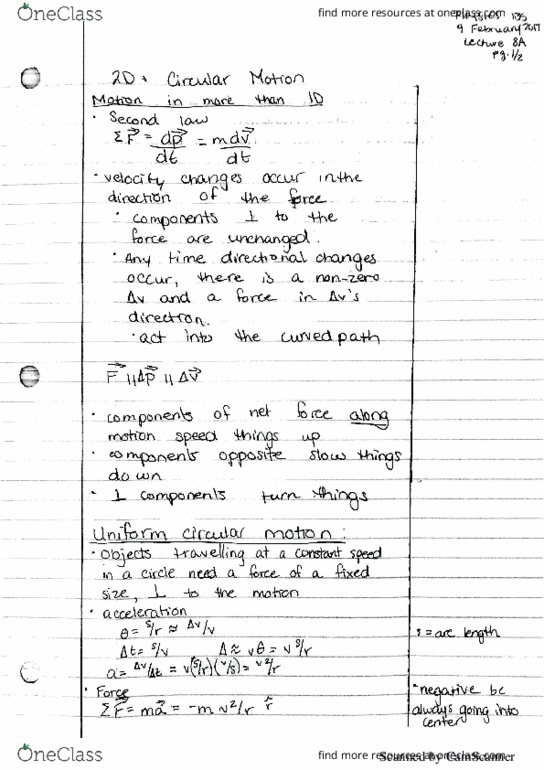 OneClass
find more resources at oneclass.com
135
9 February 2017
Lecture 8A
pg. 1/2
2D + Circular Motion
Motion in more than 1D
· Second law
ΣF⃗ = dp⃗/dt = mdv⃗/dt
· velocity changes occur in the
direction of the force
· components ⊥ to the
force are unchanged.
· Any time directional changes
occur, there is a non-zero
Δv and a force in Δv's
direction.
· act into the curved path
F⃗ || Δp⃗ || Δv⃗
· components of net force along
motion speed things up
· components opposite slow things
down
· ⊥ components turn things
Uniform circular motion:
· Objects travelling at a constant speed
in a circle need a force of a fixed
size, ⊥ to the motion
· acceleration
θ = s/r ≈ Δv/v
s = arc length
Δt = s/v Δ ≈ vθ = v s/r
a = Δv/Δt = v(s/r)(v/s) = v²/r
· Force
ΣF⃗ = ma⃗ = -m v²/r r̂
· negative bc
always going into
center
OneClass
find more resources at oneclass.com
Scanned by CamScanner